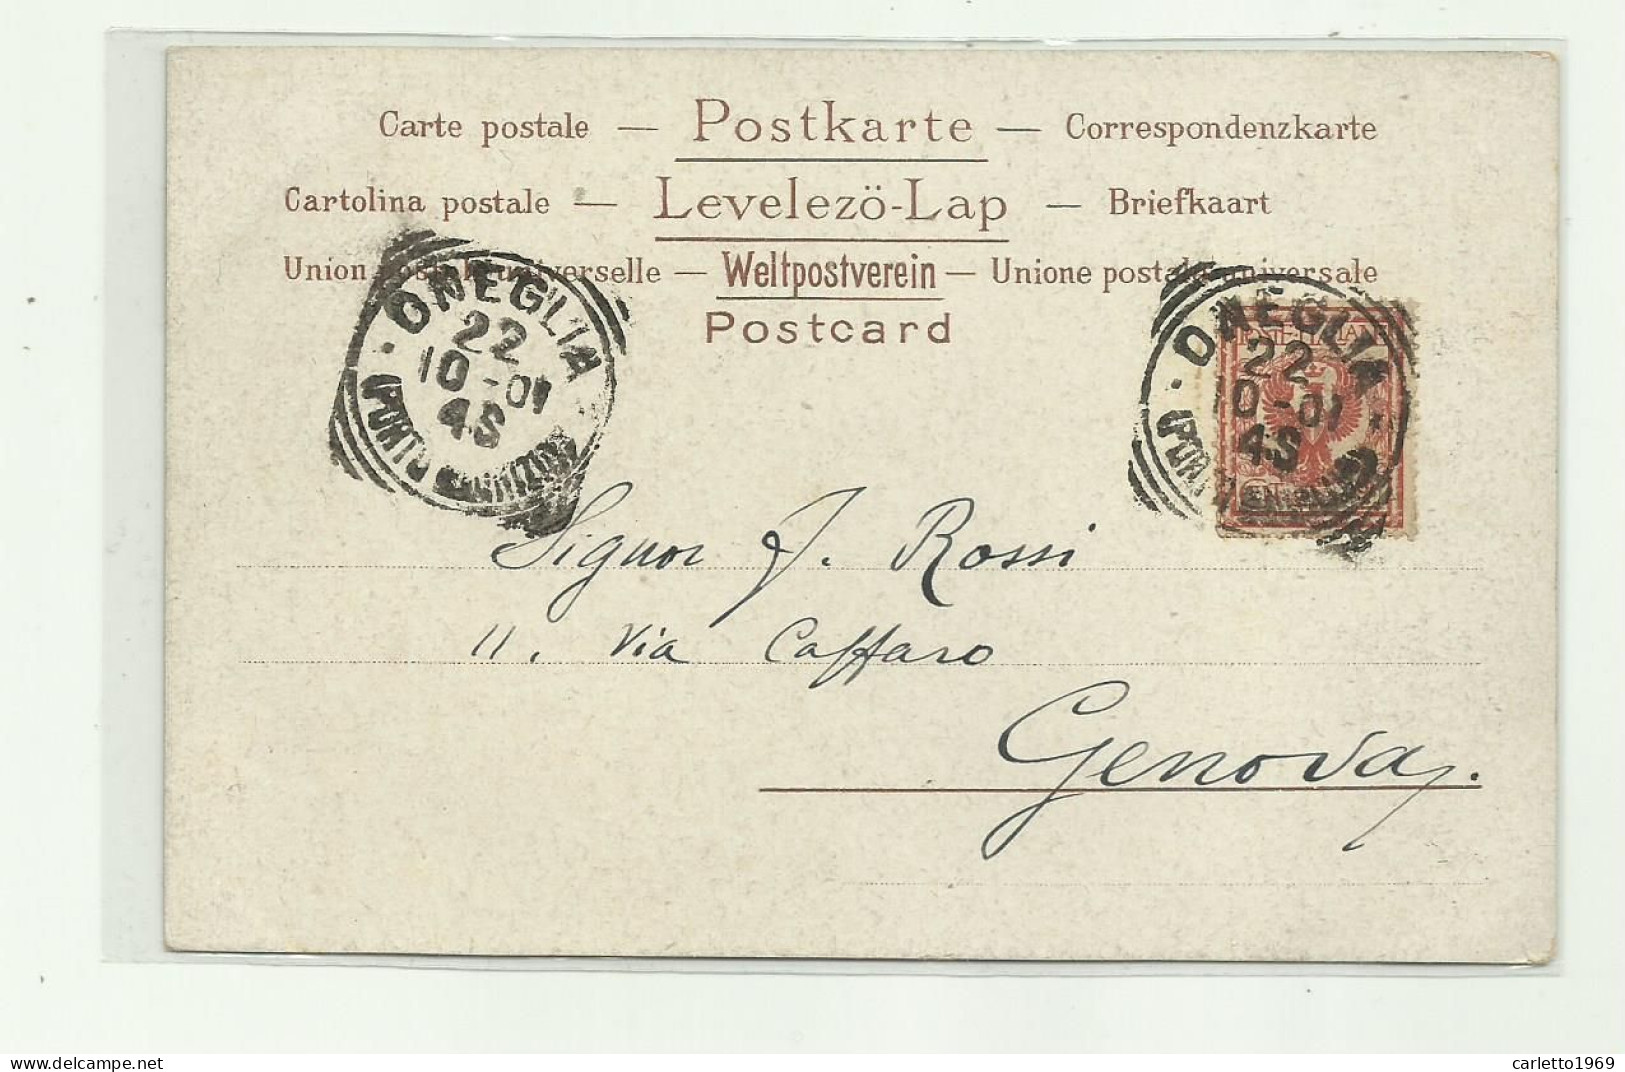 Carte postale — Postkarte — Correspondenzkarte
Cartolina postale — Levelező-Lap — Briefkaart
Union postale universelle — Weltpostverein — Unione postale universale
Postcard
ONEGLIA
22
10-01
4S
ONEGLIA
22
10-01
4S
Signor J. Rossi
11. Via Caffaro
Genova.
www.delcampe.net
carletto1969